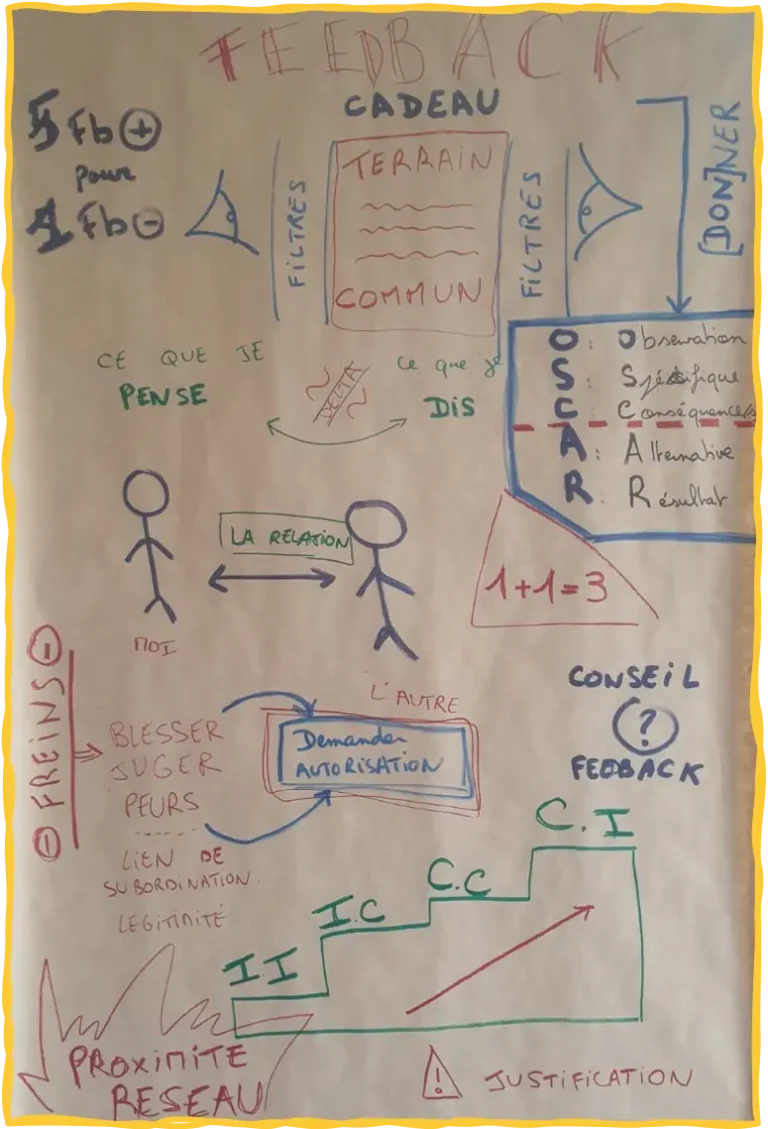 FEEDBACK
CADEAU
5 Fb +
pour
1 Fb -
FILTRES
TERRAIN
COMMUN
FILTRES
[DON]NER
O : Observation
S : Spécifique
C : Conséquence/s
A : Alternative
R : Résultat
CE QUE JE
PENSE
DELTA
Ce que je
DIS
LA RELATION
MOI
L'AUTRE
1+1=3
- FREINS -
BLESSER
JUGER
PEURS
LIEN DE
SUBORDINATION.
LEGITIMITÉ
Demander
AUTORISATION
CONSEIL
?
FEEDBACK
I I
I.C
C.C
C.I
PROXIMITE
RESEAU
! JUSTIFICATION